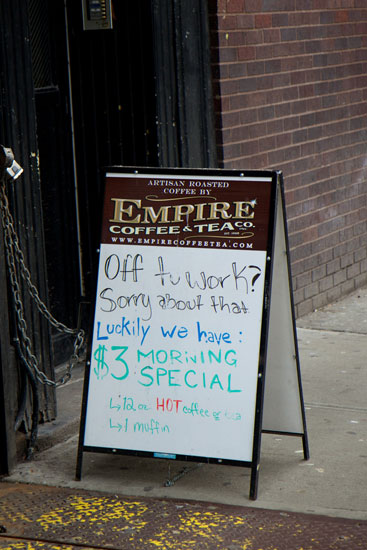 ARTISAN ROASTED
COFFEE BY
EMPIRE
COFFEE & TEA CO.
WWW.EMPIRECOFFEETEA.COM
Off to work?
Sorry about that
Luckily we have:
$3 MORNING
SPECIAL
↳12oz HOT coffee or tea
↳1 muffin